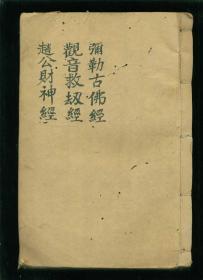 彌勒古佛經
觀音救劫經
趙公財神經